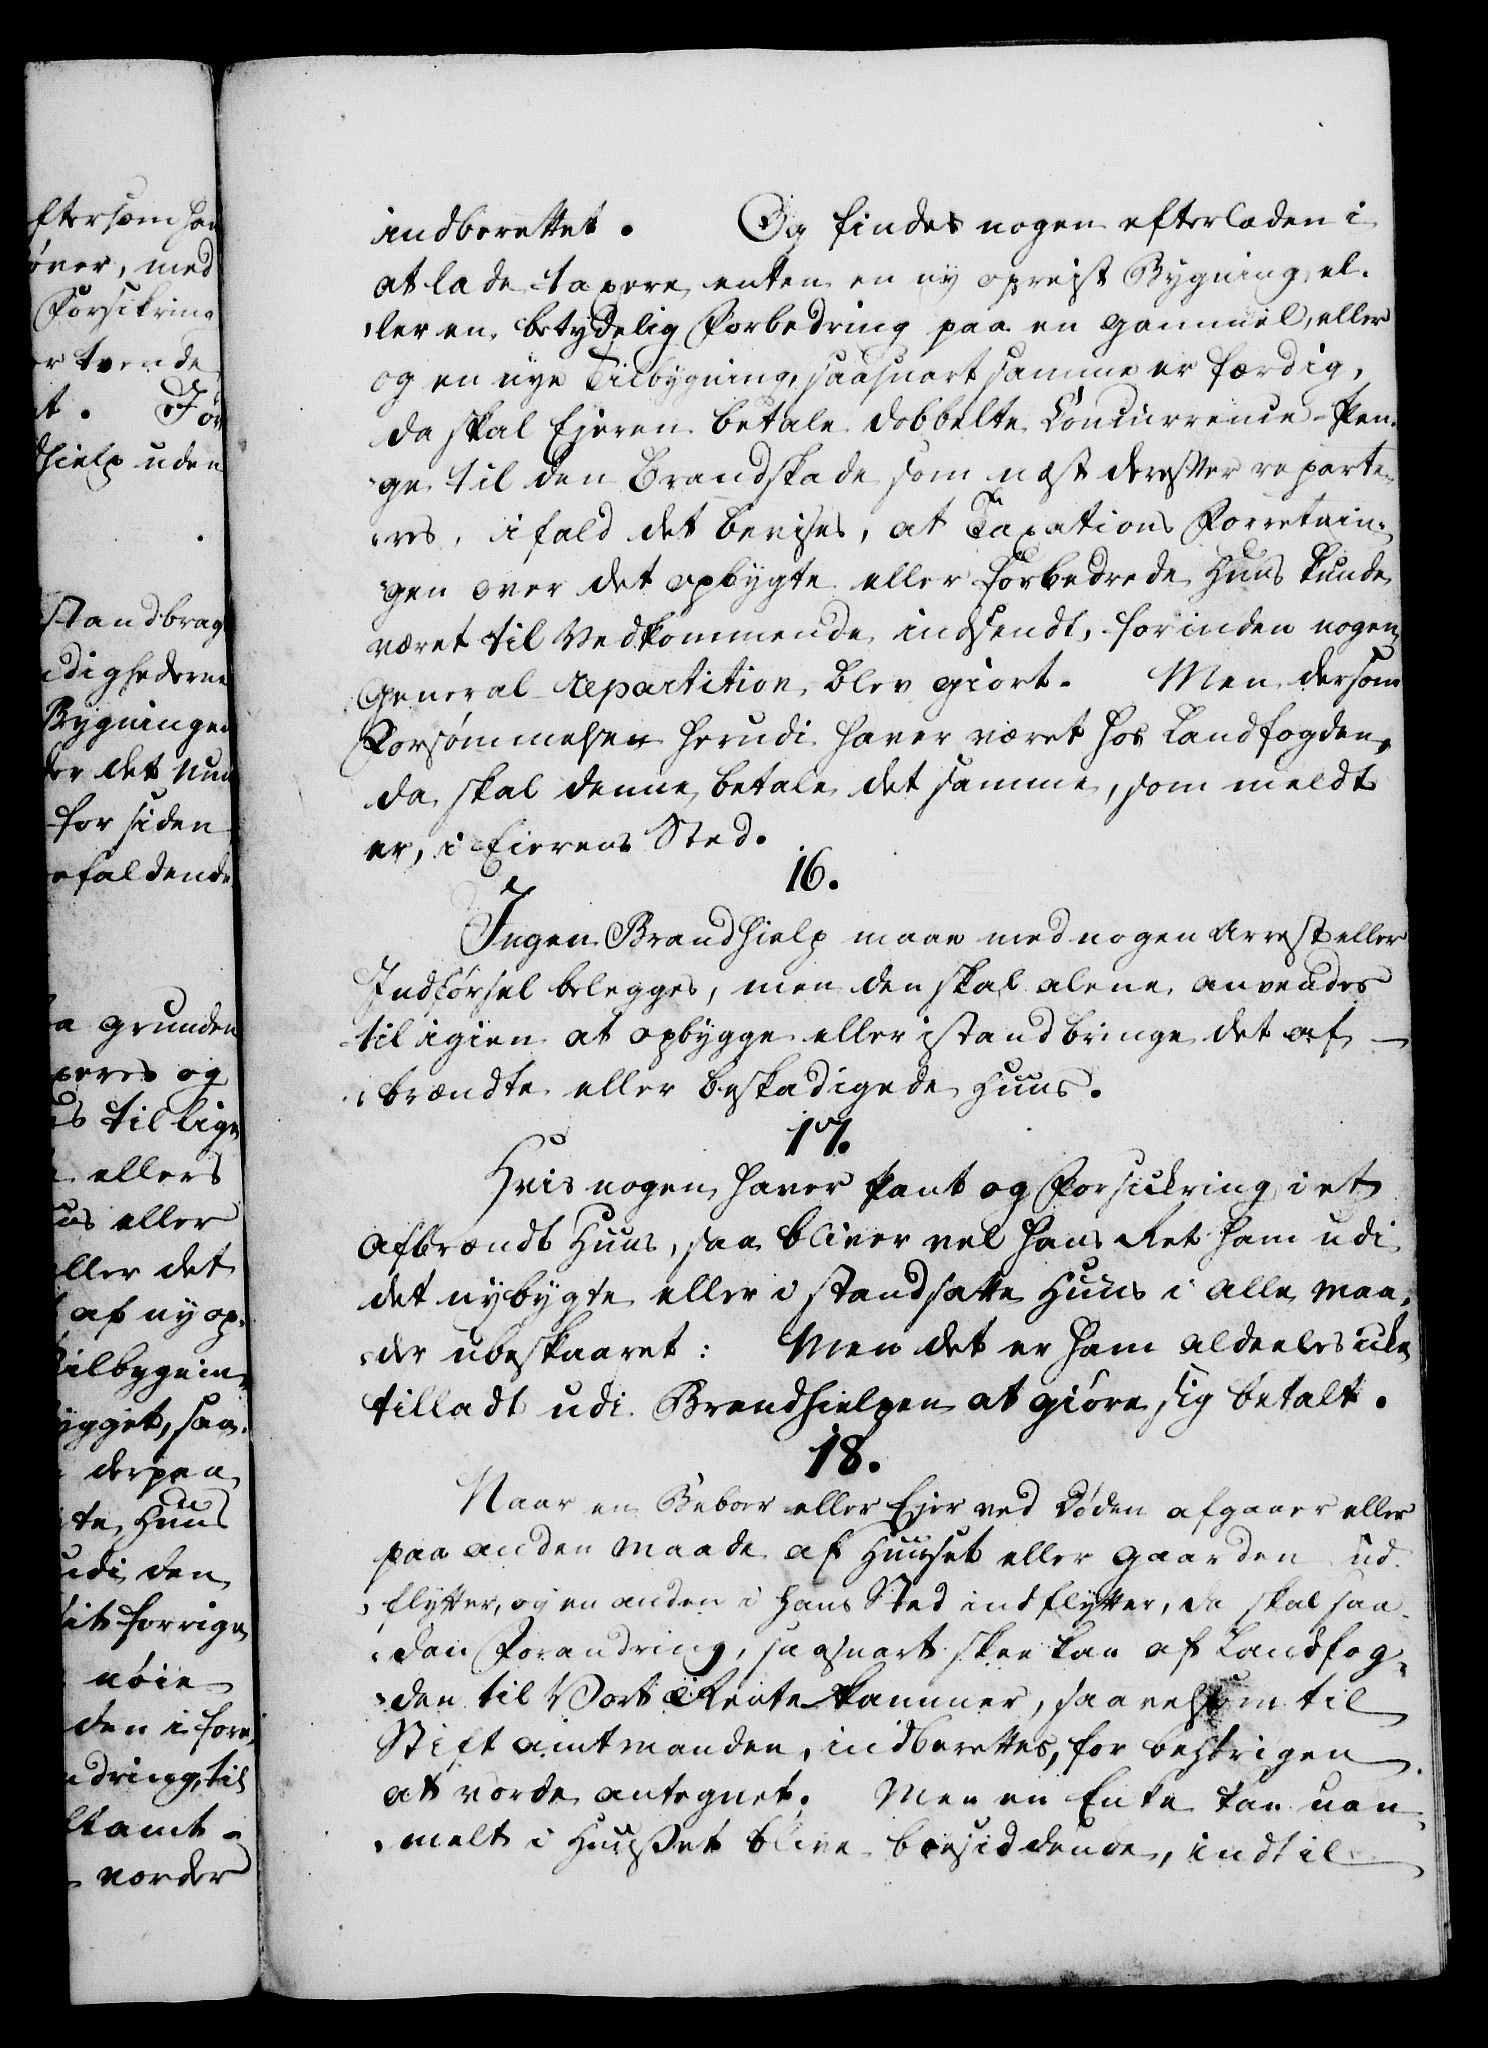 ftersom han
över, med
Forsikring
or tvende
t. För
hielp uden
standbrag
digheder​ne
Bygningen
for siden
efaldende
a grunden
peres og
us tillige
ellers
uus eller
ller det
af ny op-
Tilbygnin-
ygget, saa-
derpaa
te Huus
udi den
sit forrige
nöie
den i fore
ndring, til
ltamt-
vorder
indberettet. Og findes nogen efterladen i
at lade taxere enten en ny opreist Bygning, el-
ler en betydelig Forbedring paa en gammel, eller
og en nye Tilbygning, saasnart samme er færdig,
da skal Ejeren betale dobbelte Concurrence-Pen-
ge til den Brandskade som næst derefter reparte-
res, ifald det bevises, at Taxations Forretnin-
gen over det opbygte eller forbedrede Huus kunde
været til Vedkommende indsendt, forinden nogen
General-repartition blev giort. Men dersom
Forsømmelsen herudi haver været hos Landfogden,
da skal denne betale det samme, som meldt
er, i Eierens Sted.
16.
Ingen Brandhielp maae med nogen Arrest eller
Indförsel belegges, men den skal alene anvendes
til igien at opbygge eller istandbringe det af-
brændte eller beskadigede Huus.
17.
Hvis nogen haver Pant og Forsickring i et
afbrændt Huus, saa bliver vel hans Ret ham udi
det nybygte eller istandsatte Huus i alle Maa-
der ubeskaaret: Men det er ham aldeeles icke
tilladt udi Brandhielpen at giöre sig betalt.
18.
Naar en Beboer eller Ejer ved Döden afgaaer eller
paa anden Maade af Huuset eller Gaarden ud-
flytter, og en anden i hans Sted indflytter, da skal saa-
dan Forandring, saasnart skee kan af Landfog-
den til Vort Rentekammer, saavelsom til
Stiftamtmanden, indberettes, for behörigen
at vorde antegnet. Men en Enke kan uan-
melt i Huuset blive boesiddende, indtil